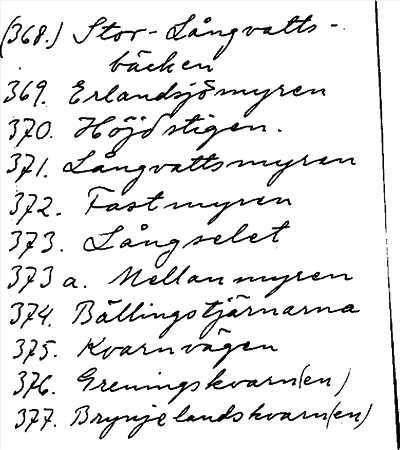 (368.) Stor-Långvatts-
bäcken
369. Erlandsjömyren
370. Höjdstigen.
371. Långvattsmyren
372. Fastmyren
373. Långselet
373 a. Mellanmyren
374. Bällingstjärnarna
375. Kvarnvägen
376. Greningskvarn(en)
377. Brynjelandskvarn(en)